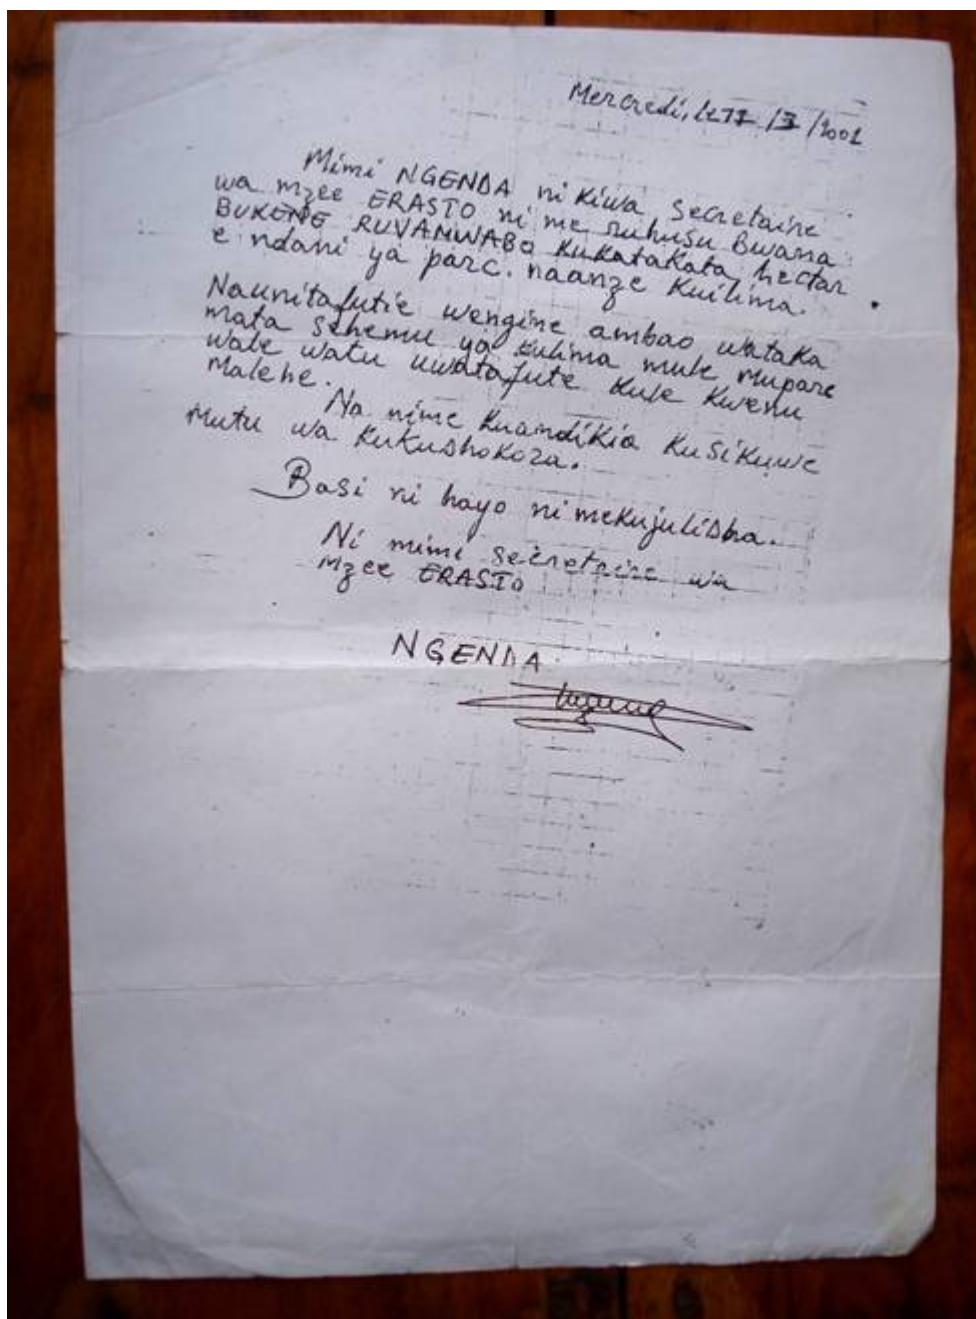 Mercredi, le 77 /3/2001
Mimi NGENDA ni kiwa secretaire
wa mzee ERASTO ni me ruhusu Bwana
BUKENE RUVAMWABO Kukatakata hectar
e ndani ya parc. naanze Kuilima.
Naunitafutie wengine ambao wataka
mata sehemu ya kulima mule Muparc
wale watu uwatafute kule kwenu
Malehe.
Na nime kuandikia kusikuwe
Mutu wa Kukushokoza.
Basi ni hayo ni mekujulisha.
Ni mimi secretaire wa
Mzee ERASTO
NGENDA